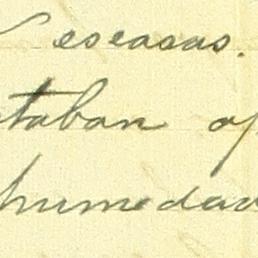 escasas.
taban
humedad